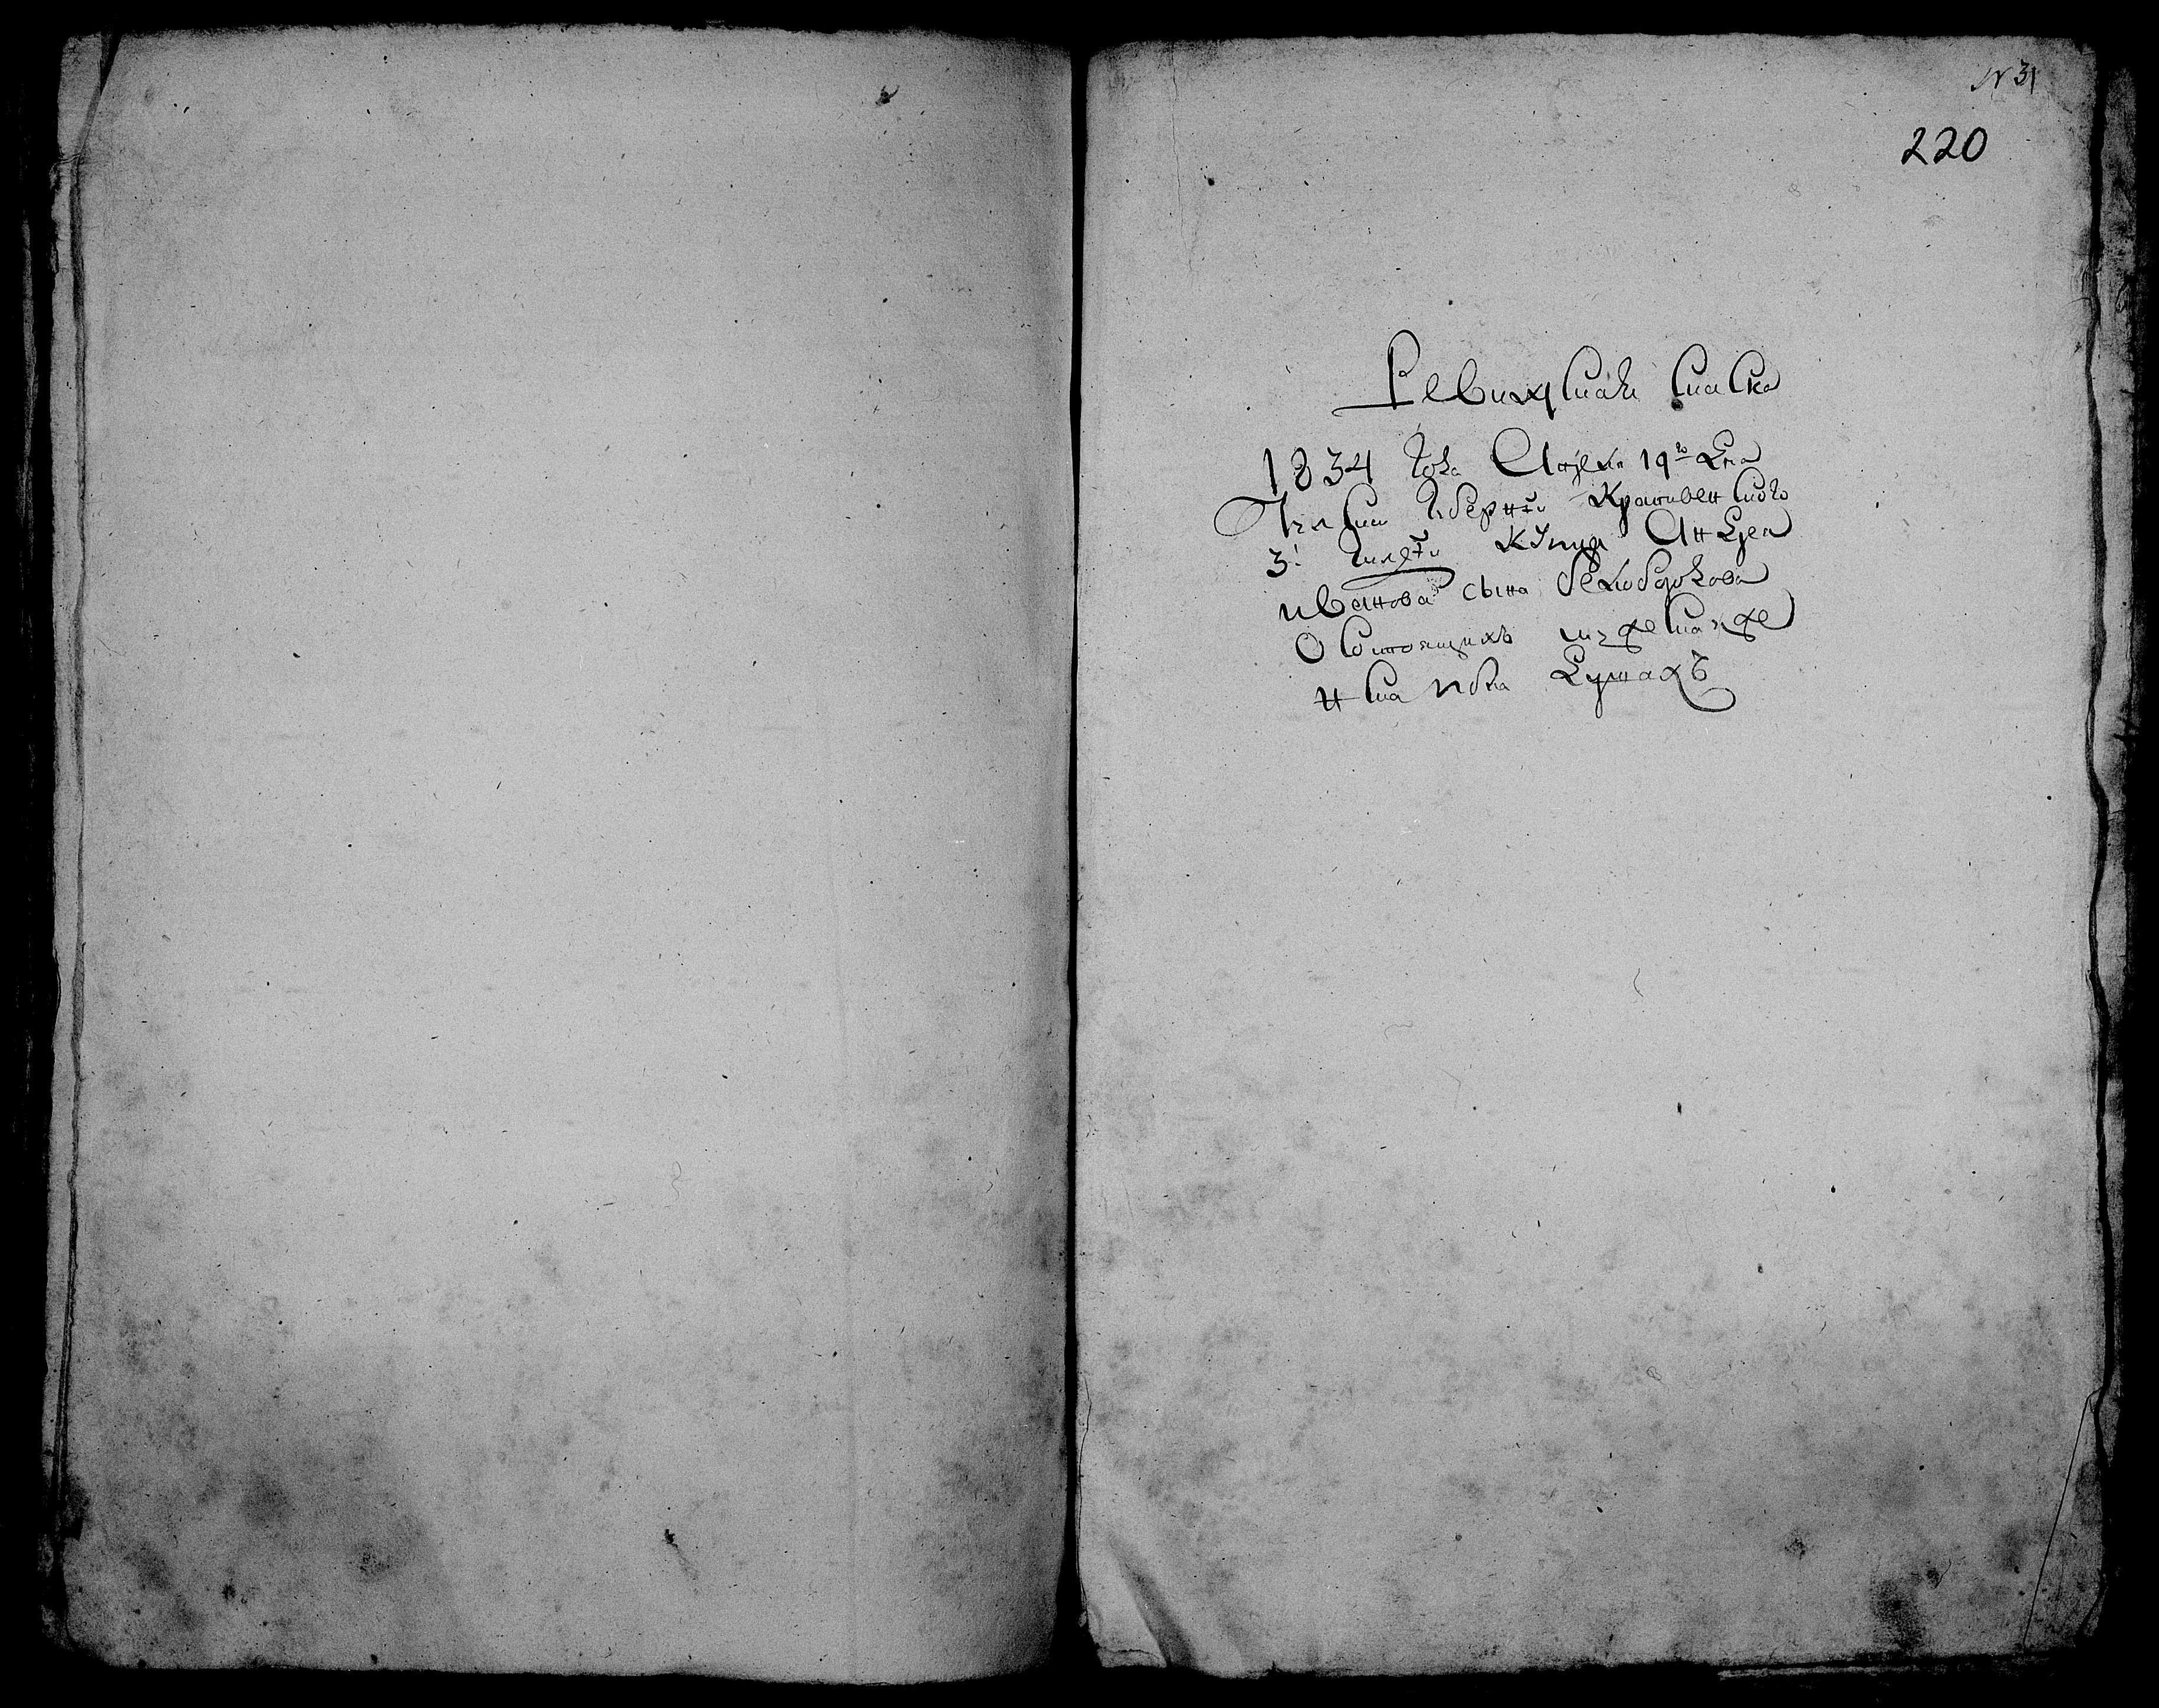 N 31
220
Ревижская Скаска
1834 года Апреля 19го Дня
Тулской Губернии Крапивенского
3й Гилдии Купца Андрея
Иванова сына Белобородова
О Состоящихъ мужеска и же
нска пола Душахъ